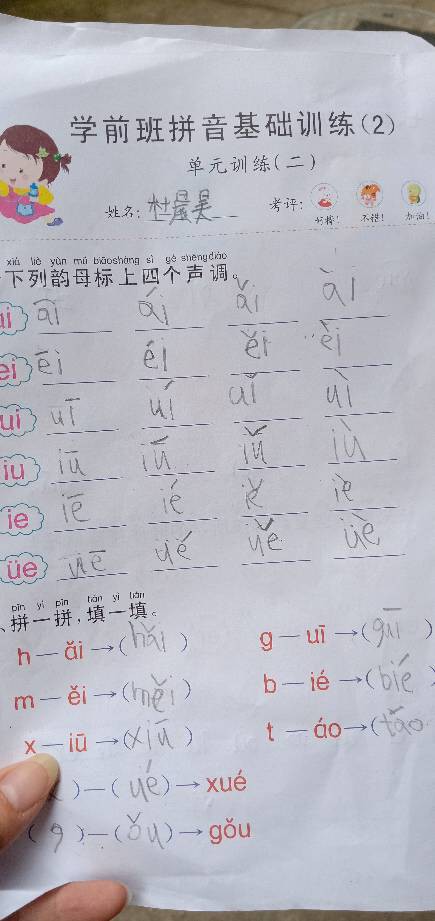 学前班拼音基础训练(2)
单元训练(二)
姓名: 考评: 好棒! 不错! 加油!
xià liè yùn mǔ biāoshàng sì gè shēngdiào
下列韵母标上四个声调。
āi ái ǎi ài
ei ēi éi ěi èi
ui uī uí uǐ uì
iu iū iú iǔ iù
ie iē ié iě iè
üe üē üé üě üè
pīn yi pīn tián yi tián
、拼一拼,填一填。
h — ǎi →(hǎi) g — uī →(guī)
m — ěi →(měi) b — ié →(bié
x — iū →(xiū) t — áo →(táo
)—(üé)→ xué
(g)—(ǒu)→ gǒu